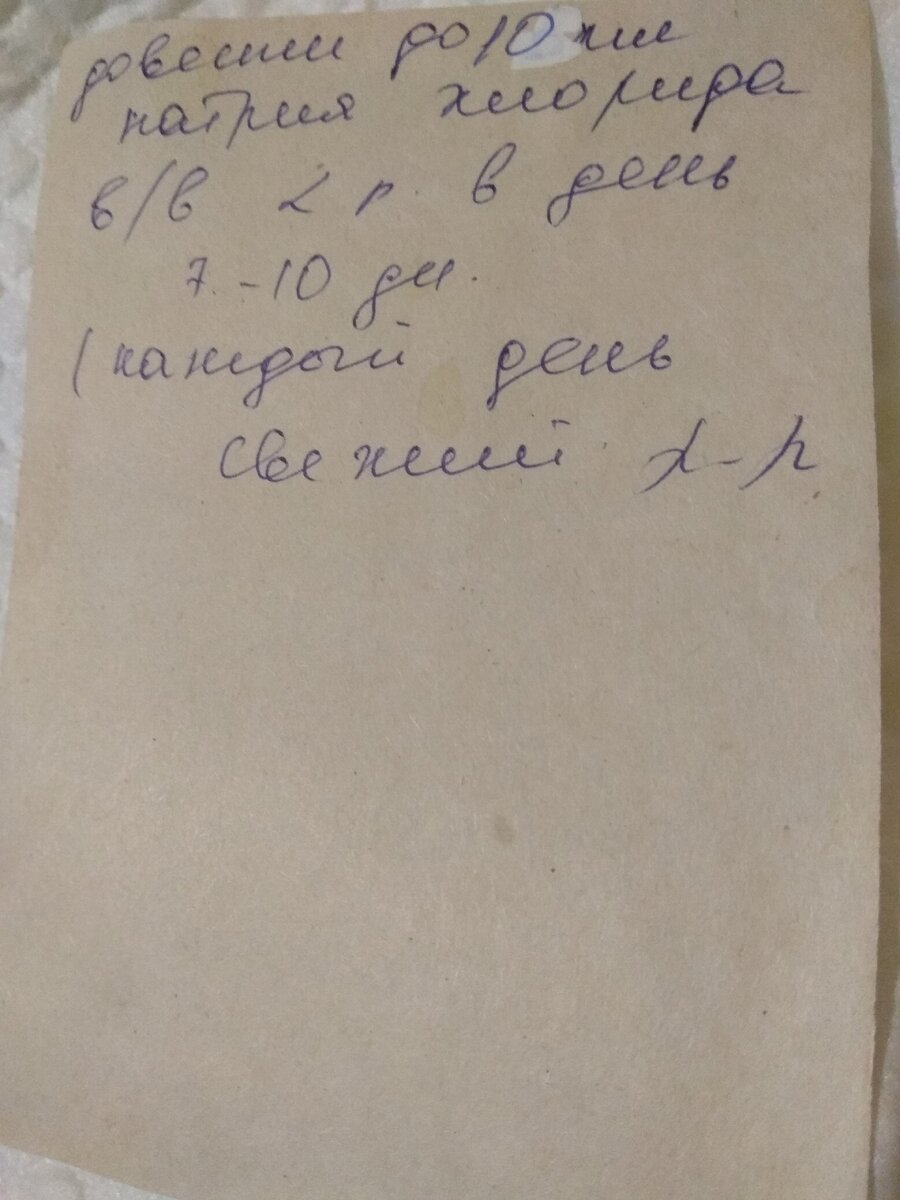 довести до 10 мл
натрия хлорида
в/в 2 р. в день
7.-10 дн.
(каждый день
свежий р-р